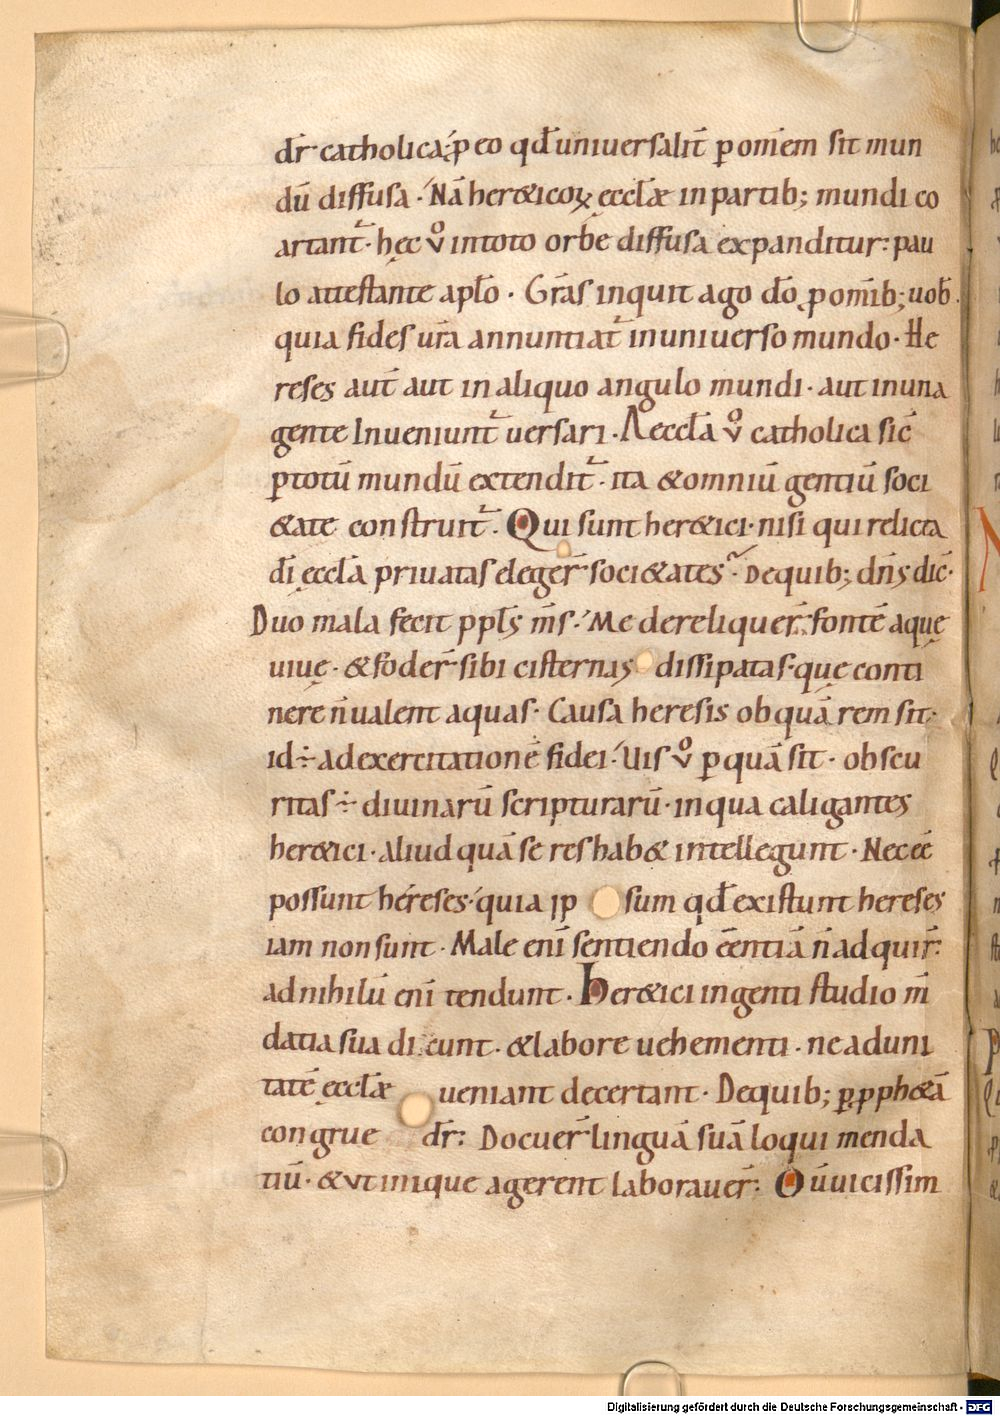 dr̄ catholica; ꝑ eo qd̄ uniuersalit̄ ꝑ om̄em sit mun
dū diffusa · Nā her&icoꝝ ęccl̄ę in partib; mundi co
artant᷑ · hęc v̊ in toto orbe diffusa expanditur: pau
lo attestante apl̄o · Grās inquit ago dō ꝓ om̄ib; uob̄ ·
quia fides ur̄a annuntiat᷑ in uniuerso mundo · He
reses aut̄ aut in aliquo angulo mundi · aut in una
gente Inueniunt᷑ uersari · Aeccl̄a v̊ catholica sic̄
ꝑ totū mundū extendit᷑ · ita & omniū gentiū soci
&ate construit᷑ · Qui sunt her&ici · nisi qui relicta
dī ęccl̄a priuatas eleger̄ soci&ates · De quib; dn̄s dic̄ ·
Duo mala fecit ppl̄s m̄s · Me dereliquer̄ fontē aquę
uiuę · & foder̄ sibi cisternas dissipatas · quę conti
nere n̄ ualent aquas · Causa heresis ob quā rem sit ·
id ÷ ad exercitationē fidei · Uis v̊ ꝑ quā sit · obscu
ritas ÷ diuinarū scripturarū · in qua caligantes
her&ici · aliud quā se res hab& intellegunt · Nec eē
possunt héreses · quia ip sum qd̄ existunt hereses
iam non sunt · Male enī sentiendo eēntiā n̄ adquir̄ ·
ad nihilū enī tendunt · Her&ici ingenti studio m̄
datia sua dicunt · & labore uehementi · ne ad uni
tatē ęccl̄ę ueniant decertant · De quib; ꝑ ꝓph&ā
congrue dr̄: Docuer̄ linguā suā loqui menda
tiū · & vt inique agerent laborauer̄: Qū uicissim
Digitalisierung gefördert durch die Deutsche Forschungsgemeinschaft - DFG